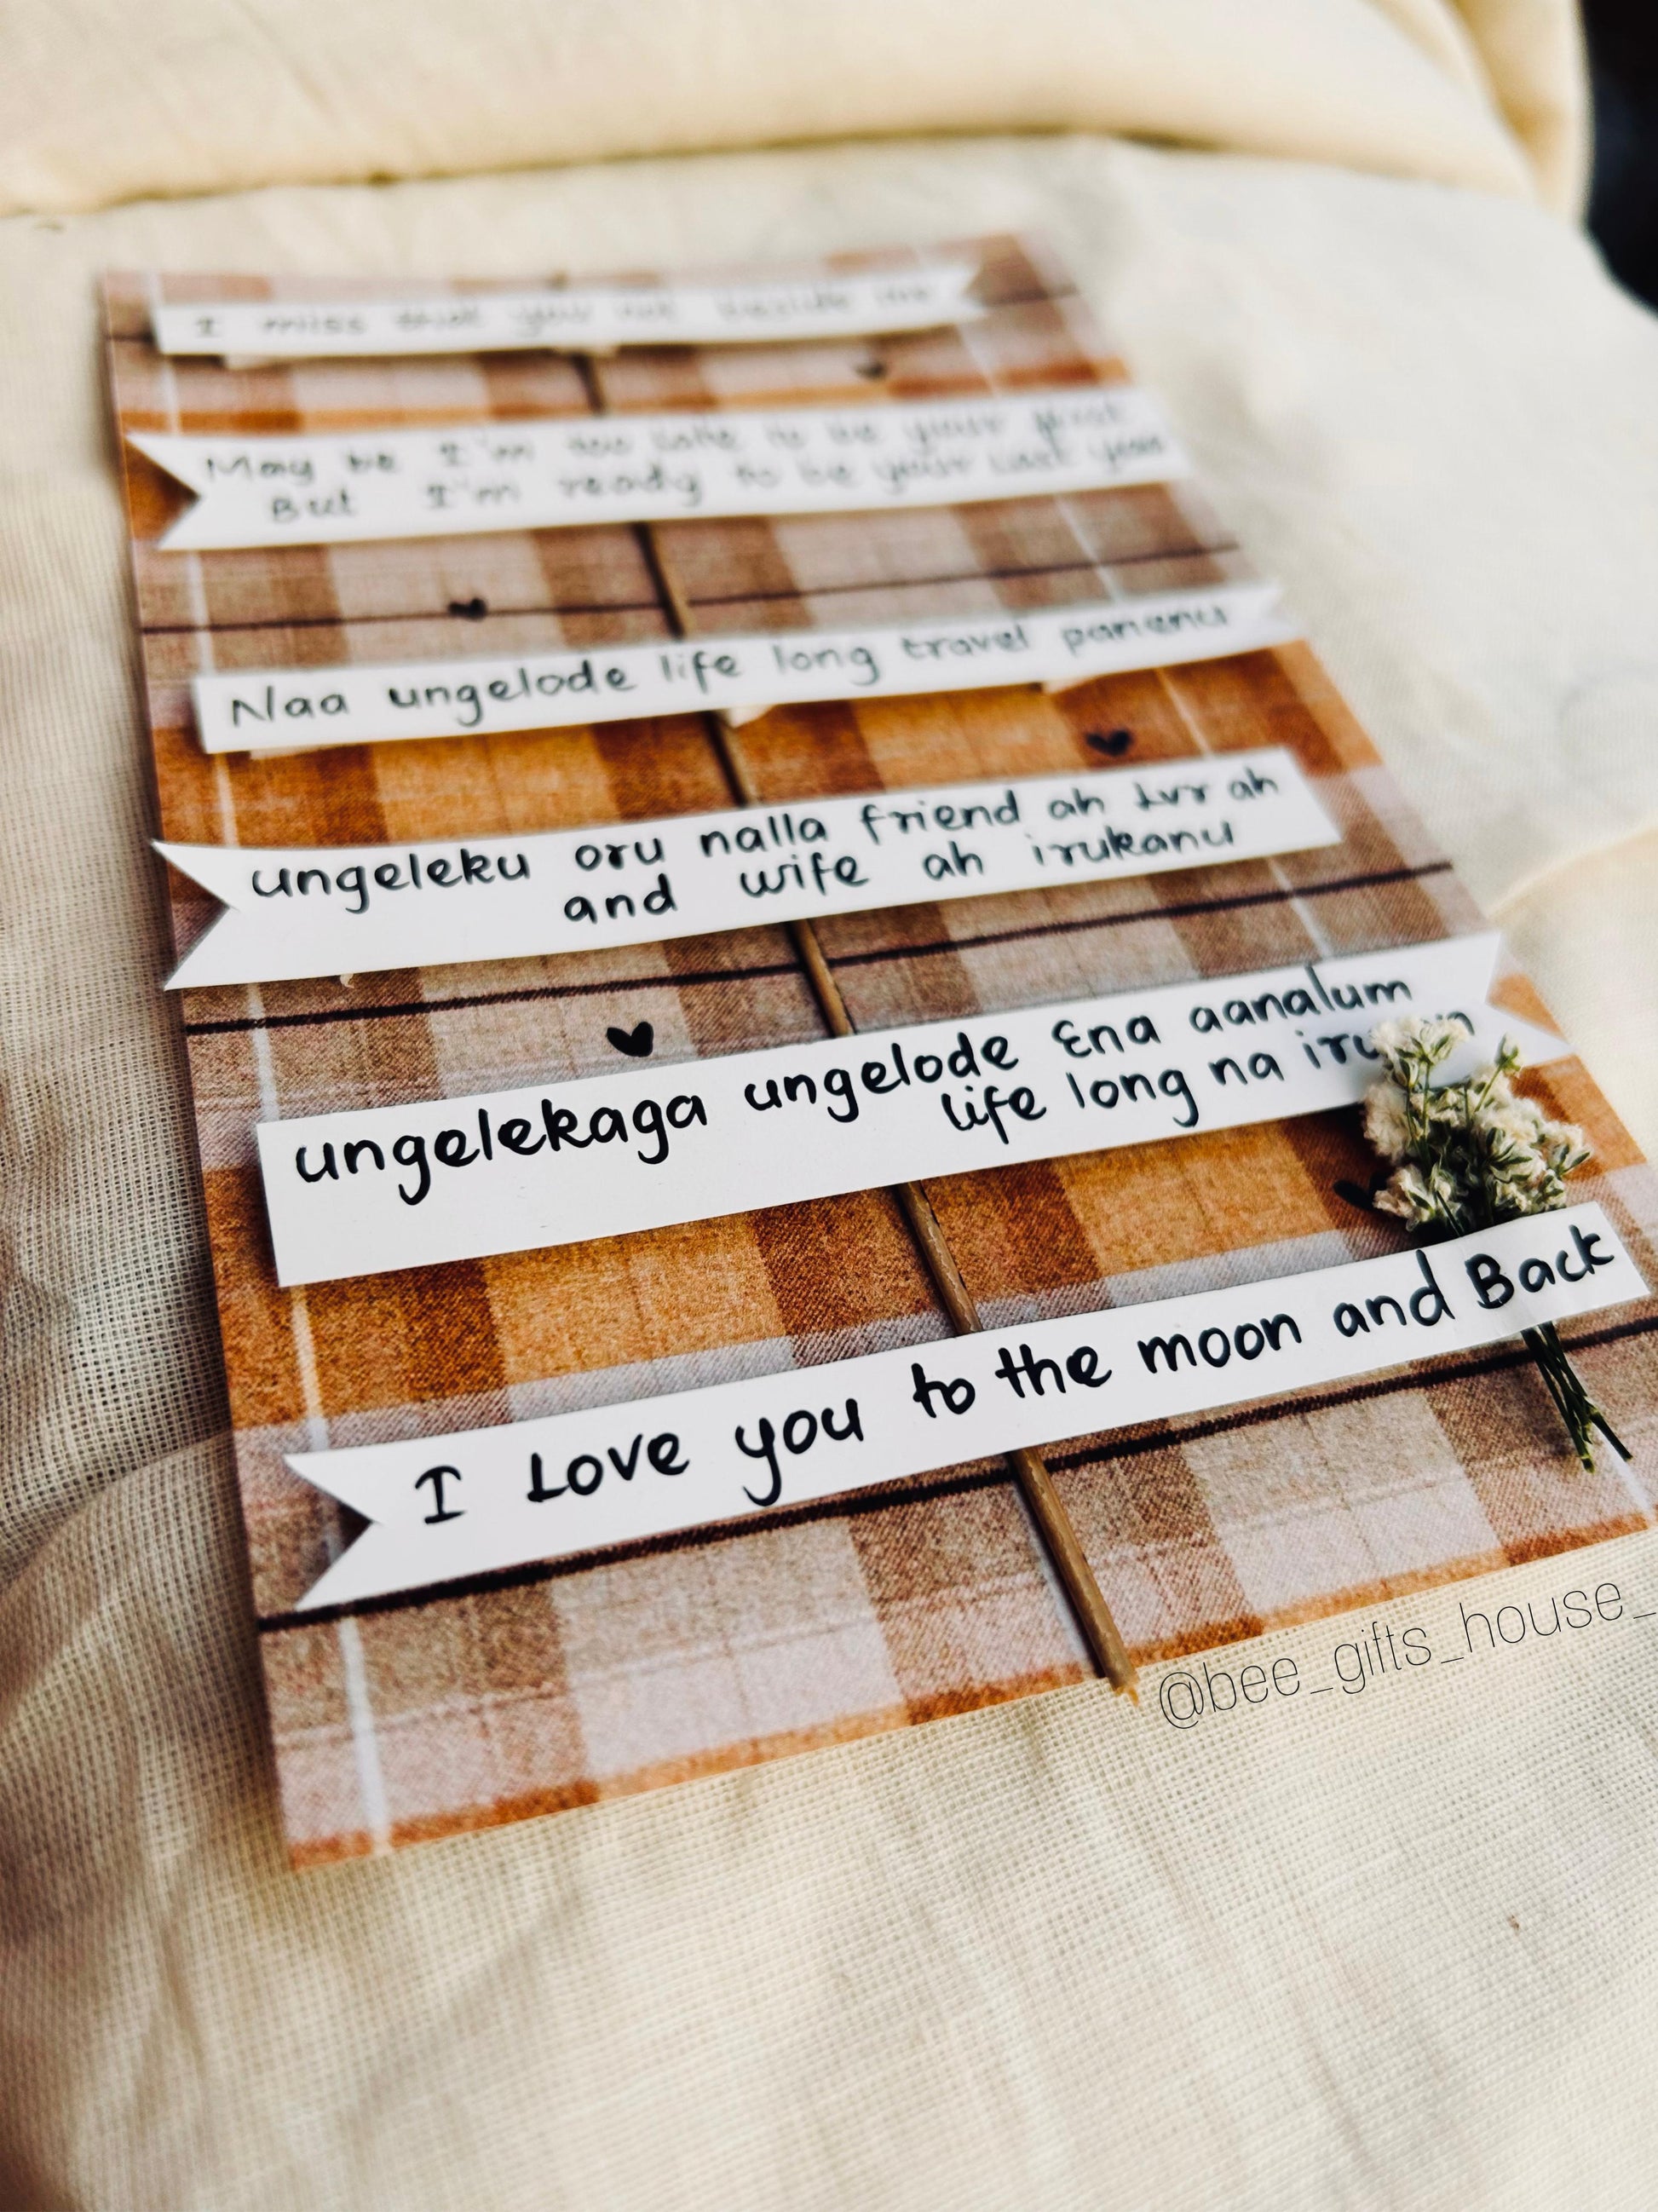 I miss that you not beside me
May be I'm too late to be your first
But I'm ready to be your last
Naa ungelode life long travel pananu
ungeleku oru nalla friend ah Lvr ah
and wife ah irukanu
ungelekaga ungelode Ena aanalum
life long na
I Love you to the moon and Back
@bee_gifts_house_